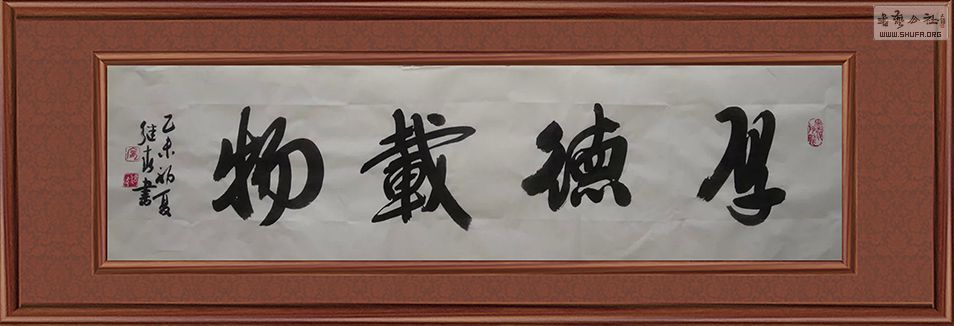 厚德載物
乙未初夏
继春書
書藝公社
WWW.SHUFA.ORG